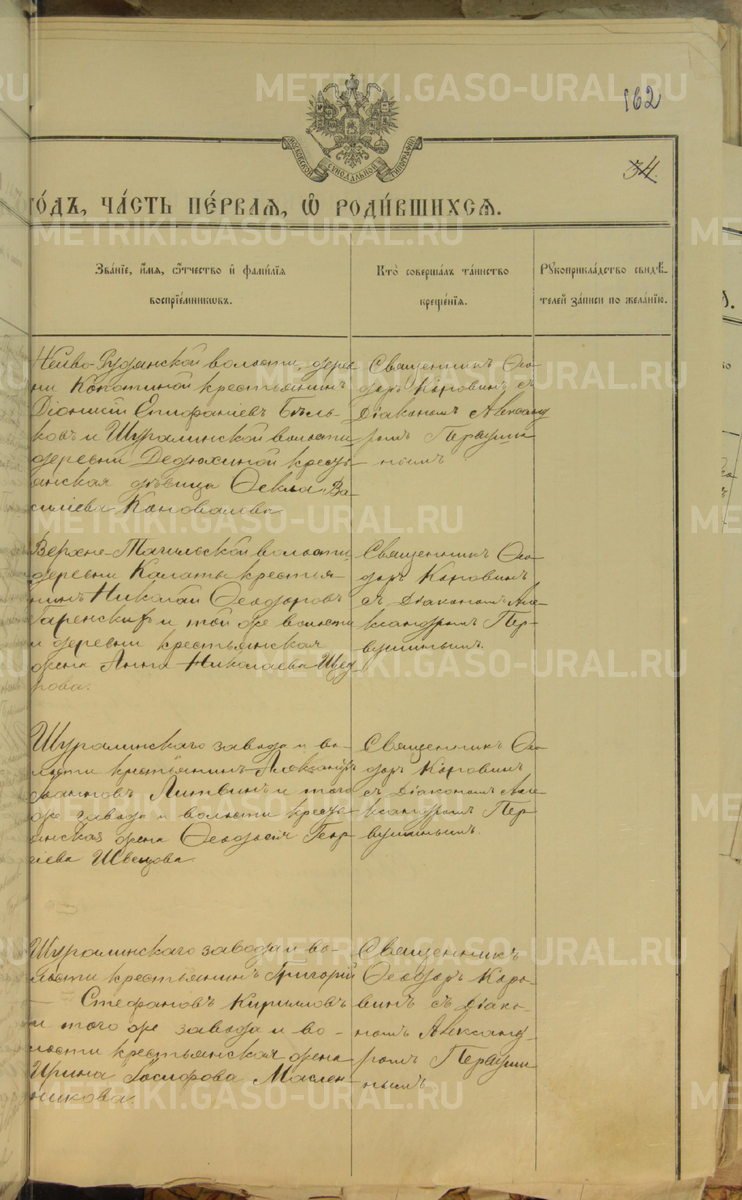 METRIKI.GASO-URAL.RU
162
34.
МОСКОВСКОЙ СѴНОДАЛЬНОЙ ТИПОГРАФІИ
го́дъ, ча́сть пе́рваѧ, ѡ҆ роди́вшихсѧ.
Зва́нїе, и҆́мѧ, ѻ҆́тчество и҆ фами́лїѧ
воспрїе́мникѡвъ.
Кто̀ соверша́лъ та́инство
креще́нїѧ.
Рꙋкоприкла́дство свидѣ́-
телей за́писи по жела́нїю.
Нейво-Рудянской волости, дерев-
ни Копотиной крестьянинъ
Діонисій Епифаніевъ Бѣль-
ковъ и Шуралинской волости
деревни Дедюхиной кресть-
янская дѣвица Ѳекла Ва-
сильева Коновалова
Священникъ Ѳео-
доръ Коровинъ съ
Діакономъ Александ-
ромъ Первуши-
нымъ
Верхне-Тагильской волости,
деревни Калаты крестья-
нинъ Николай Ѳеодоровъ
Гаренскихъ и той же волости
и деревни крестьянская
жена Анна Николаева Щед-
рова.
Священникъ Ѳео-
доръ Коровинъ
съ Діакономъ Але-
ксандромъ Пер-
вушинымъ.
Шуралинскаго завода и во-
лости крестьянинъ Александръ
Ивановъ Литвинъ и того
же завода и волости кресть-
янская жена Ѳеодосія Геор-
гіева Швецова
Священникъ Ѳео-
доръ Коровинъ
съ Діакономъ Але-
ксандромъ Пер-
вушинымъ.
Шуралинскаго завода и во-
лости крестьянинъ Григорій
Стефановъ Кирилловъ
и того же завода и во-
лости крестьянская жена
Ирина Маслен-
никова
Священникъ
Ѳеодоръ Коро-
винъ съ Діако-
номъ Александ-
ромъ Первуши-
нымъ